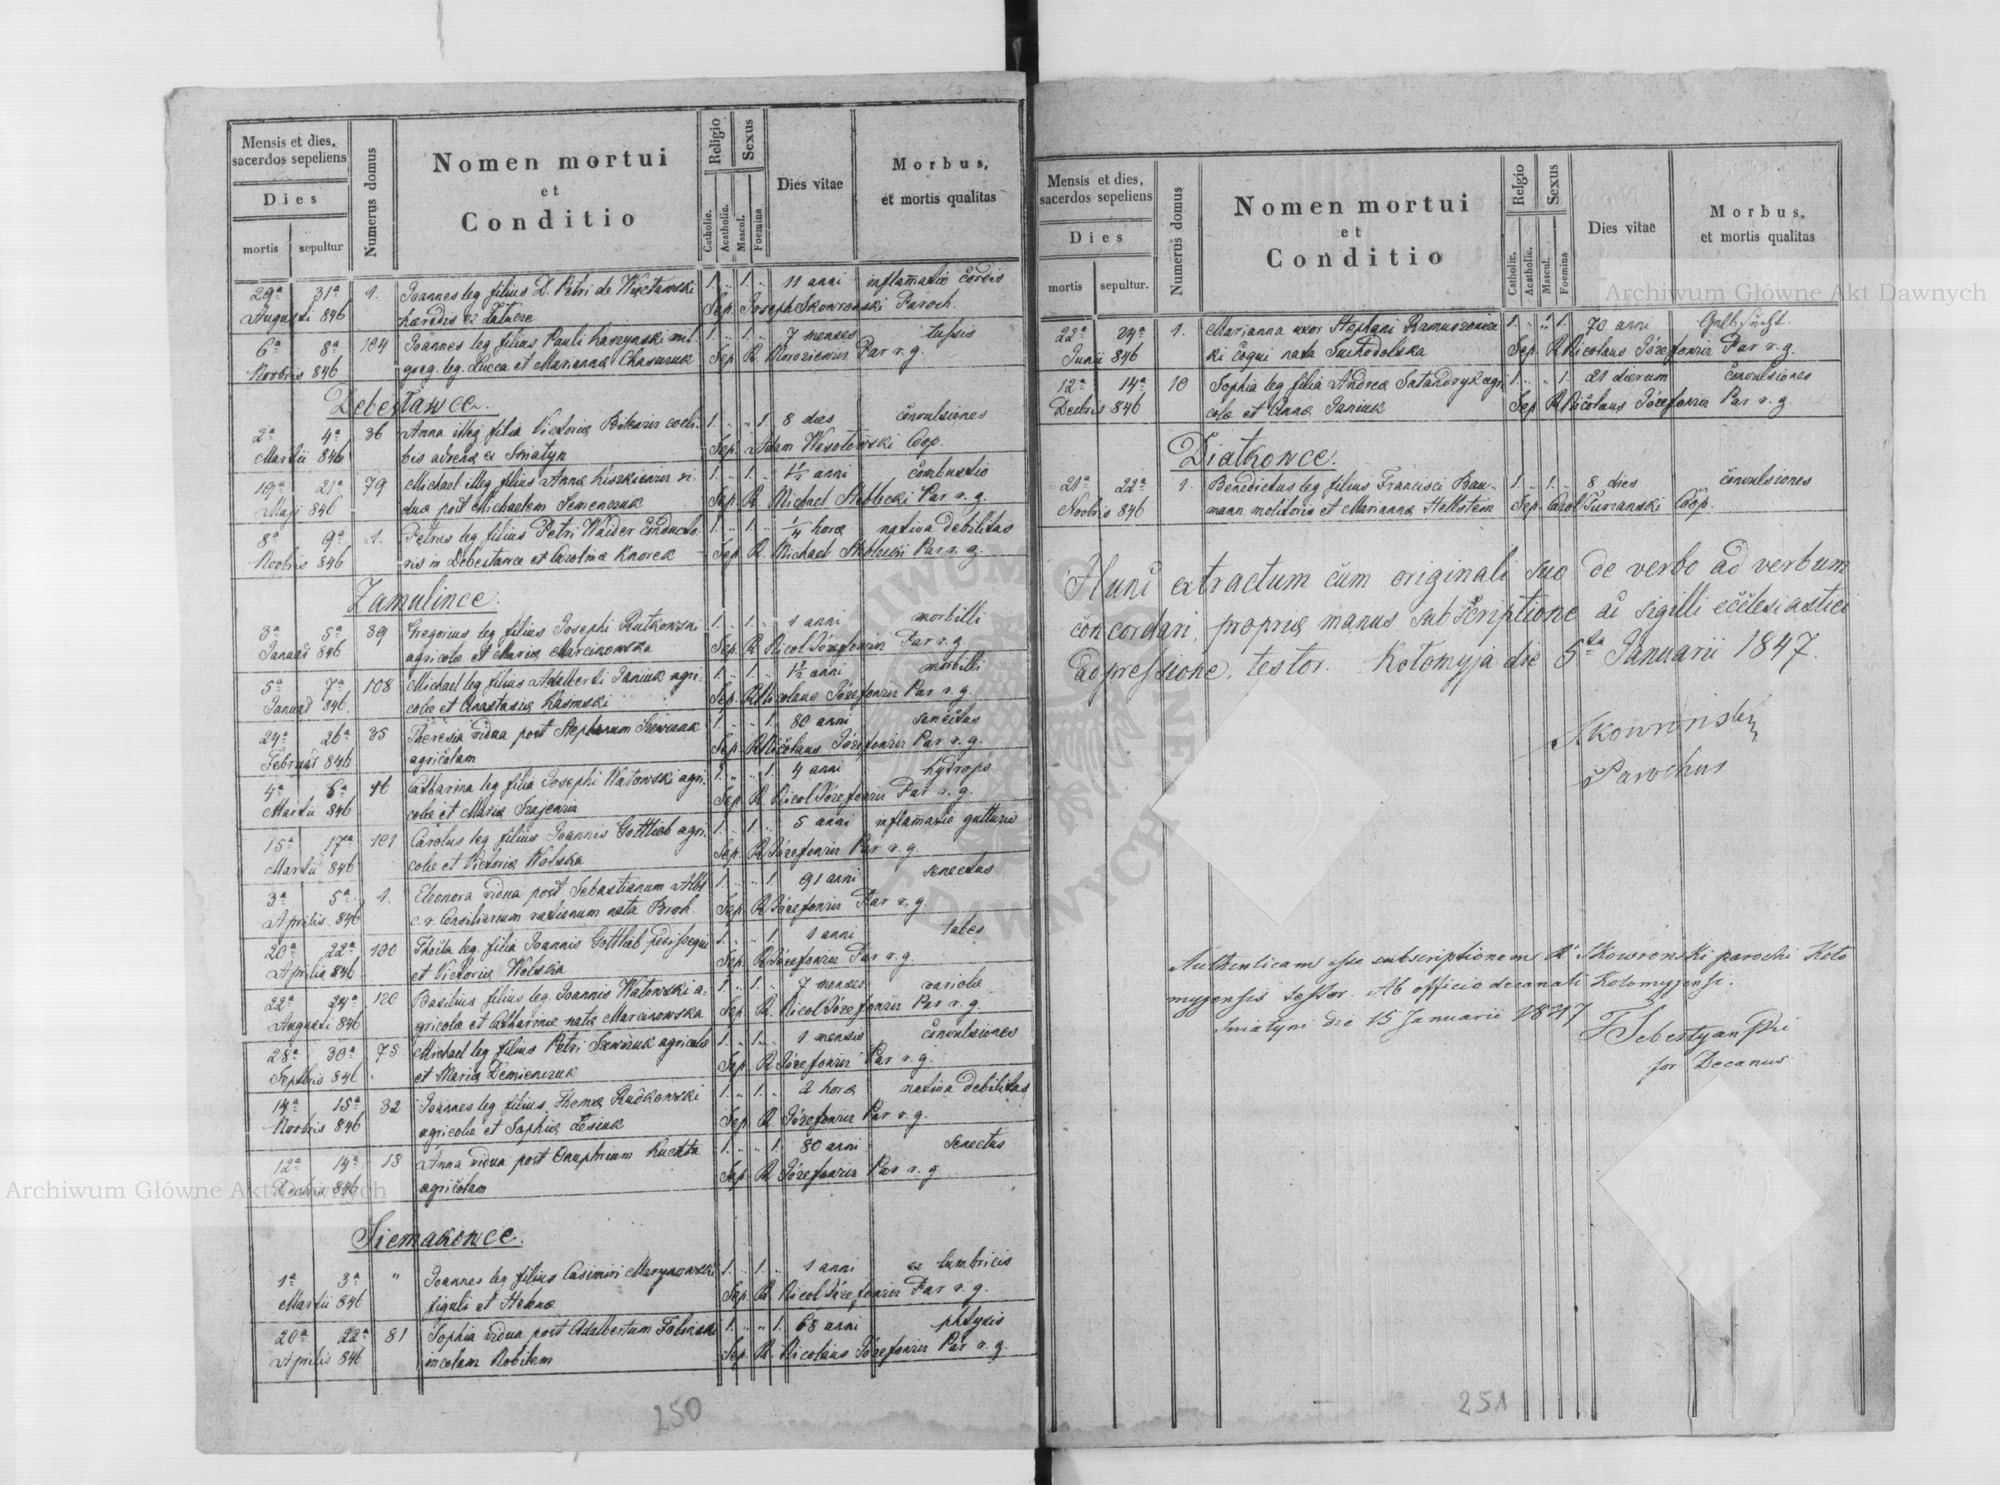 Mensis et dies,
sacerdos sepeliens
Dies
mortis sepultur
Numerus domus
Nomen mortui
et
Conditio
Religio
Catholic.
Acatholic.
Sexus
Mascul.
Foemina
Dies vitae
Morbus,
et mortis qualitas
29ª 31ª 1. Joannes leg filius D. Petri de 1. 1. 11 anni inflamatio cordis
Augusti 846 haeredis Sep. Joseph Skowronski Paroch.
6ª 8ª 104 Joannes leg filius Pauli 1. 1. 7 menses tussis
Novbris 846 greg. leg. Lucca et Marianna Sep. R. Par r. g.
Debesławce.
2ª 4ª 36 Anna illeg filia Victoria coeli- 1. 1. 8 dies convulsiones
Martii 846 bis Sniatyn Sep. Adam Wesołowski Coop.
19ª 21ª 79 Michael illeg filius Anna vi- 1. 1. 1½ anni combustio
Maji 846 dua post Michaelem Semenczuk Sep. R. Michael Par r. g.
8ª 9ª 1. Petrus leg filius Petri Waider conducto- 1. 1. ¼ hora nativa debilitas
Novbris 846 ris in Debesławce et Carolina Knorek Sep. R. Michael Par r. g.
Zamulince.
3ª 5ª 39 Gregorius leg filius Josephi Rutkowski 1. 1. 1 anni morbilli
Januar 846 agricola et Maria Marcinowska Sep. R. Nicol Józefowicz Par r. g.
5ª 7ª 108 Michael leg filius Adalberti Janiuk agri- 1. 1. 1½ anni morbilli
Januar 846 cola et Anastasia Sep. R. Nicolaus Józefowicz Par r. g.
24ª 26ª 35 Theresia vidua post Stephanum Szewczuk 1. 1. 80 anni senectus
Februar 846 agricolam Sep. R. Nicolaus Józefowicz Par r. g.
4ª 6ª 46 Catharina leg filia Josephi Watowski agri- 1. 1. 4 anni hydrops
Martii 846 cola et Maria Sep. R. Nicol Józefowicz Par r. g.
15ª 17ª 101 Carolus leg filius Joannis Gottlieb agri- 1. 1. 5 anni inflamatio gutturis
Martii 846 cola et Victoria Wolska Sep. R. Józefowicz Par r. g.
3ª 5ª 1. Eleonora vidua post Sebastianum 1. 1. 91 anni senectus
Aprilis 846 c. r. Consiliarium rationum nata Broh. Sep. R. Józefowicz Par r. g.
20ª 22ª 100 Thecla leg. filia Joannis Gottlieb pedissequi 1. 1. 1 anni tabes
Aprilis 846 et Victoria Wolska Sep. R. Józefowicz Par r. g.
22ª 24ª 120 Basilius filius leg. Joannis Watowski a- 1. 1. 7 menses variola
Augusti 846 gricola et Catharina nata Marcinowska Sep. R. Nicol Józefowicz Par r. g.
28ª 30ª 75 Michael leg filius Petri Szewczuk agricola 1. 1. 1 mensis convulsiones
Septbris 846 et Maria Demienczuk Sep. R. Józefowicz Par r. g.
14ª 15ª 32 Joannes leg filius Thoma Rudkowski 1. 1. 2 hora nativa debilitas
Novbris 846 agricola et Sophia Lesiuk Sep. R. Józefowicz Par r. g.
12ª 14ª 18 Anna vidua post Onuphrium Kuchta 1. 1. 80 anni senectus
Decbris 846 agricolam Sep. R. Józefowicz Par r. g.
Siemakowce.
1ª 3ª " Joannes leg filius Casimiri Marynowski 1. 1. 1 anni ex lumbricis
Martii 846 figuli et Helena Sep. R. Nicol Józefowicz Par r. g.
20ª 22ª 81 Sophia vidua post Adalbertum 1. 1. 68 anni phtysis
Aprilis 846 incolam Nobilem Sep. R. Nicolaus Józefowicz Par r. g.
250
Mensis et dies,
sacerdos sepeliens
Dies
mortis sepultur.
Numerus domus
Nomen mortui
et
Conditio
Relgio
Catholic.
Acatholic.
Sexus
Mascul.
Foemina
Dies vitae
Morbus,
et mortis qualitas
22ª 24ª 1. Marianna uxor Stephani 1. 1. 70 anni Gelbsucht.
Junii 846 ki coqui nata Suchodolska Sep. R. Nicolaus Józefowicz Par r. g.
12ª 14ª 10 Sophia leg filia Andrea agri- 1. 1. 21 dierum convulsiones
Decbris 846 cola et Anna Janiuk Sep. R. Nicolaus Józefowicz Par r. g.
Diatkowce.
21ª 22ª 1. Benedictus leg filius Francisci Bau- 1. 1. 8 dies convulsiones
Novbris 846 mann molitoris et Marianna Hellstein Sep. Carol Turzanski Coop.
Hunc extractum cum originali suo de verbo ad verbum
concordari, propria manus subscriptione ac sigilli ecclesiastici
adpressione, testor. Kołomyja die 5ta Januarii 1847.
Skowronski
Parochus
Authenticam esse subscriptionem Skowronski parochi Koło
myjensis testor. Ab officio decanali Kolomyjensi.
Sniatyni die 15 Januarii 1847
for Decanus
251
Archiwum Główne Akt Dawnych
Archiwum Główne Akt Dawnych